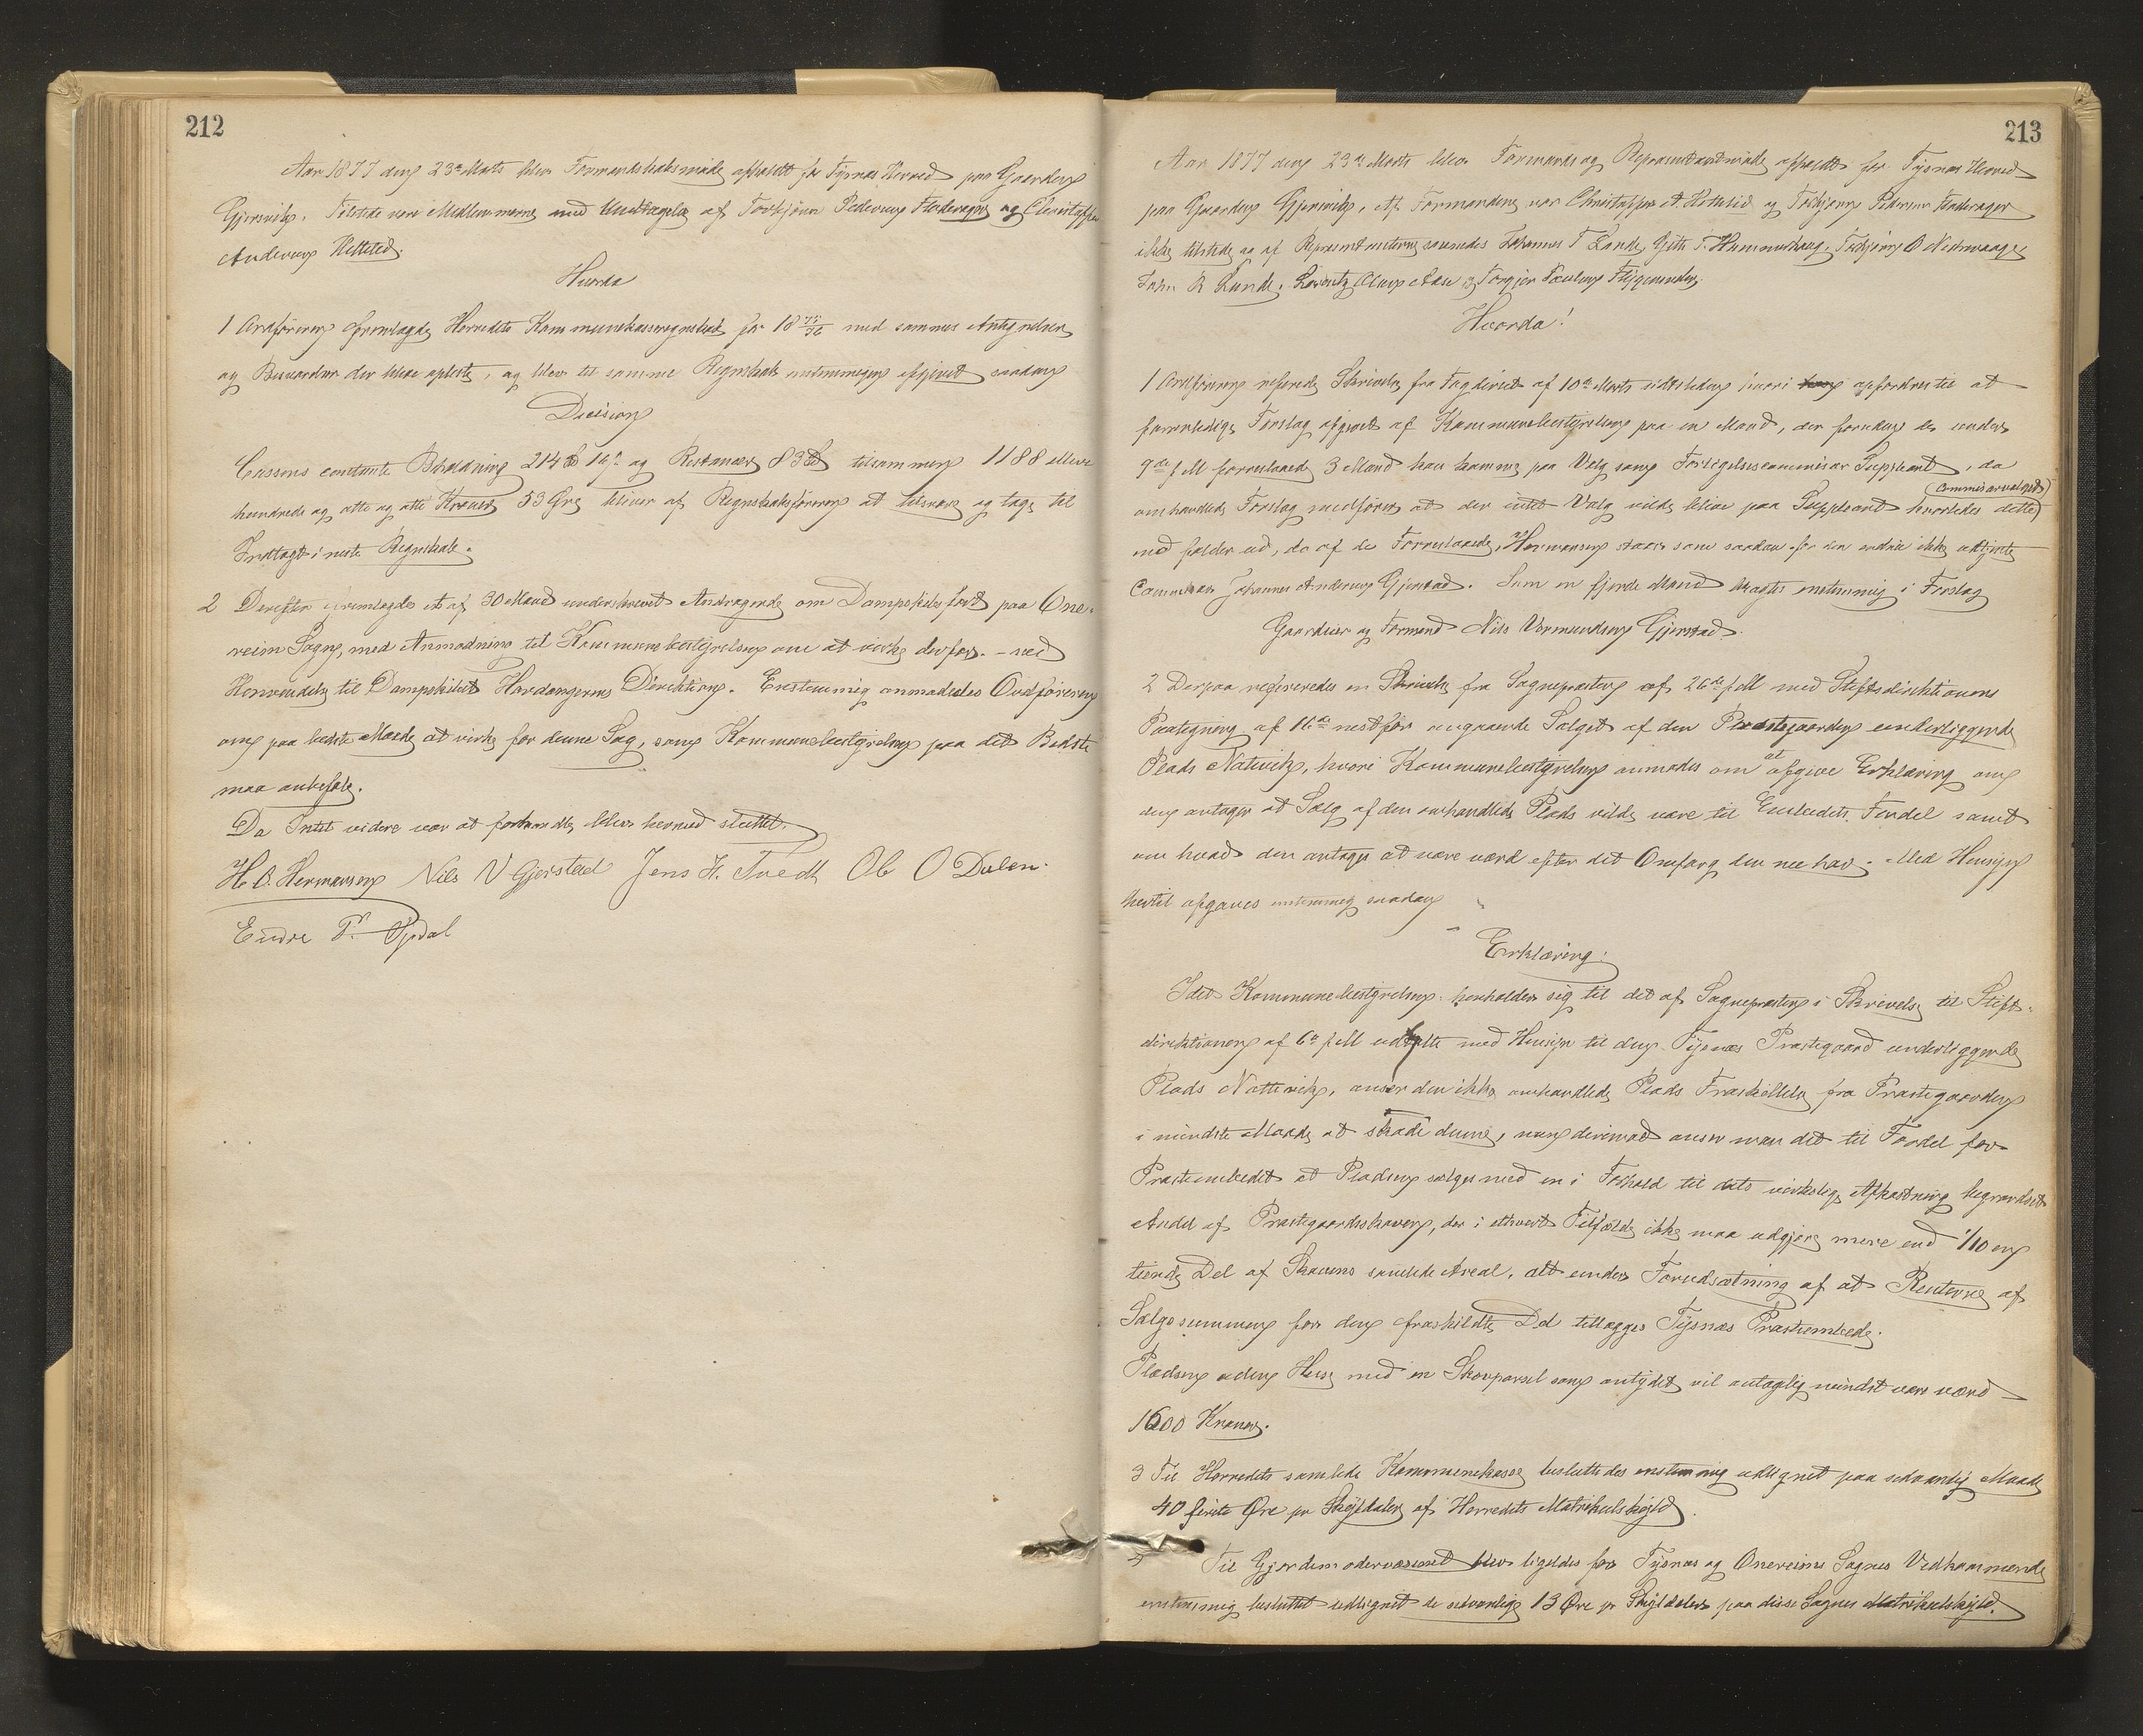 212
Aar 1877 den 23de Marts blev Formandskabsmøde afholdt for Tysnæs Herred paa Gaarden
Gjersvik. Tilstede vare Medlemmerne med Undtagelse af Torbjørn Pedersen Fladerager og Christopher
Andersen Hettleid.
Hvorda
1 Ordføreren fremlagde Herredets Kommunekasseregnskab for 18 75/76 med sammes Antegnelser
og Besvarelser der bleve oplæste, og blev til samme Regnskab enstemmigen afgivet saadan
Decision
Cassens contante Beholdning 214 16 og Restancer 83 tilsammen 1188 elleve
hundrede og otte og otti Kroner 53 Øre bliver af Regnskabsføreren at tilsvare og tage til
Indtægt i næste Regnskab.
2 Derefter fremlagdes et af 30 Mand underskrevet Andragende om Dampskibsfart paa One-
reim Sogn, med Anmodning til Kommunebestyrelsen om at virke derfor - ved
Henvendelse til Dampskibet Hardangerens Direktion. Enstemmig anmodedes Ordføreren
om paa bedste Maade at virke for denne Sag, som Kommunebestyrelsen paa det Bedste
maa anbefale.
Da Intet videre var at forhandle blev hermed sluttet.
H. O. Hermansen Nils N Gjerstad Jens H. Tvedt Ole O Dalen
Endre P. Opdal
213
Aar 1877 den 23de Marts blev Formands og Repræsentantmøde afholdt for Tysnæs Herred
paa Gaarden Gjersvik. Af Formændene var Christopher A. Hetleid og Torbjørn Pedersen Fladerager
ikke tilstede og af Repræsentanterne savnedes Johannes T Lande, Gitle T. Hummerhaug, Torbjørn O Nedrevaage,
John R Lunde, Lavrits Olsen Aae og Torgjer Poulsen
Hvorda!
1 Ordføreren referede Skrivelse fra Fogderiet af 10de Marts sidstleden hvori opfordres til at
foranledige Forslag afgivet af Kommunebestyrelsen paa en Mand, der foruden de under
9de f M foreslaaede 3 Mænd kan komme paa Valg som Forligelsescommissær Suppleant, da
omhandlede Forslag medfører at der intet Valg vilde blive paa Suppleant hvorledes dette (Commissærvalget)
end falder ud, da af de Foreslaaede, Hermansen staar som saadan for den endnu ikke udtjente
Commissær Johannes Andersen Gjerstad. Som en fjerde Mand bragtes enstemmig i Forslag
Gaardeier og Formand Nils Vermundsen Gjerstad.
2 Derpaa refereredes en Skrivelse fra Sognepræsten af 26de f M med Stiftsdirektionens
Paategning af 16de næstfør angaaende Salget af den Præstegaarden underliggende
Plads Natvik, hvori Kommunebestyrelsen anmodes om at afgive Erklæring om
den antager at Salg af den omhandlede Plads vilde være til Embedets Fordel samt
om hvad den antages at være værd efter det Omfang den nu har. Med Hensyn
hertil afgaves enstemmig saadan
Erklæring:
Idet Kommunebestyrelsen henholder sig til det af Sognepræsten i Skrivelse til Stifts-
direktionen af 6te f M udtalte med Hensyn til den Tysnæs Præstegaard underliggende
Plads Nattevik, anser den ikke omhandlede Plads Fraskillelse fra Præstegaarden
i mindste Maade at skade denne, men derimod anser man det til Fordel for
Præsteembedet at Pladsen sælges med en i Forhold til dets virkelige Afkastning begrændset
Andel af Præstegaardsskoven, der i ethvert Tilfælde ikke maa udgjøre mere end 1/10 en
tiende Del af Skovens samlede Areal, alt under Forudsætning af at Renterne af
Salgssummen for den fraskildte Del tillægges Tysnæs Præsteembede.
Pladsen uden Huse med en Skovparsel som antydet vil antagelig mindst være værd
1600 Kroner.
3 Til Herredets samlede Kommunekasse besluttedes enstemmig udlignet paa sedvanlig Maade
40 firti Øre pr Skylddaler af Herredets Matrikulskyld.
Til Gjordemodervæsenet blev ligeledes for Tysnæs og Onereims Sognes Vedkommende
enstemmig besluttet udlignet de sedvanlige 13 Øre pr Skylddaler paa disse Sognes Matrikulskyld.